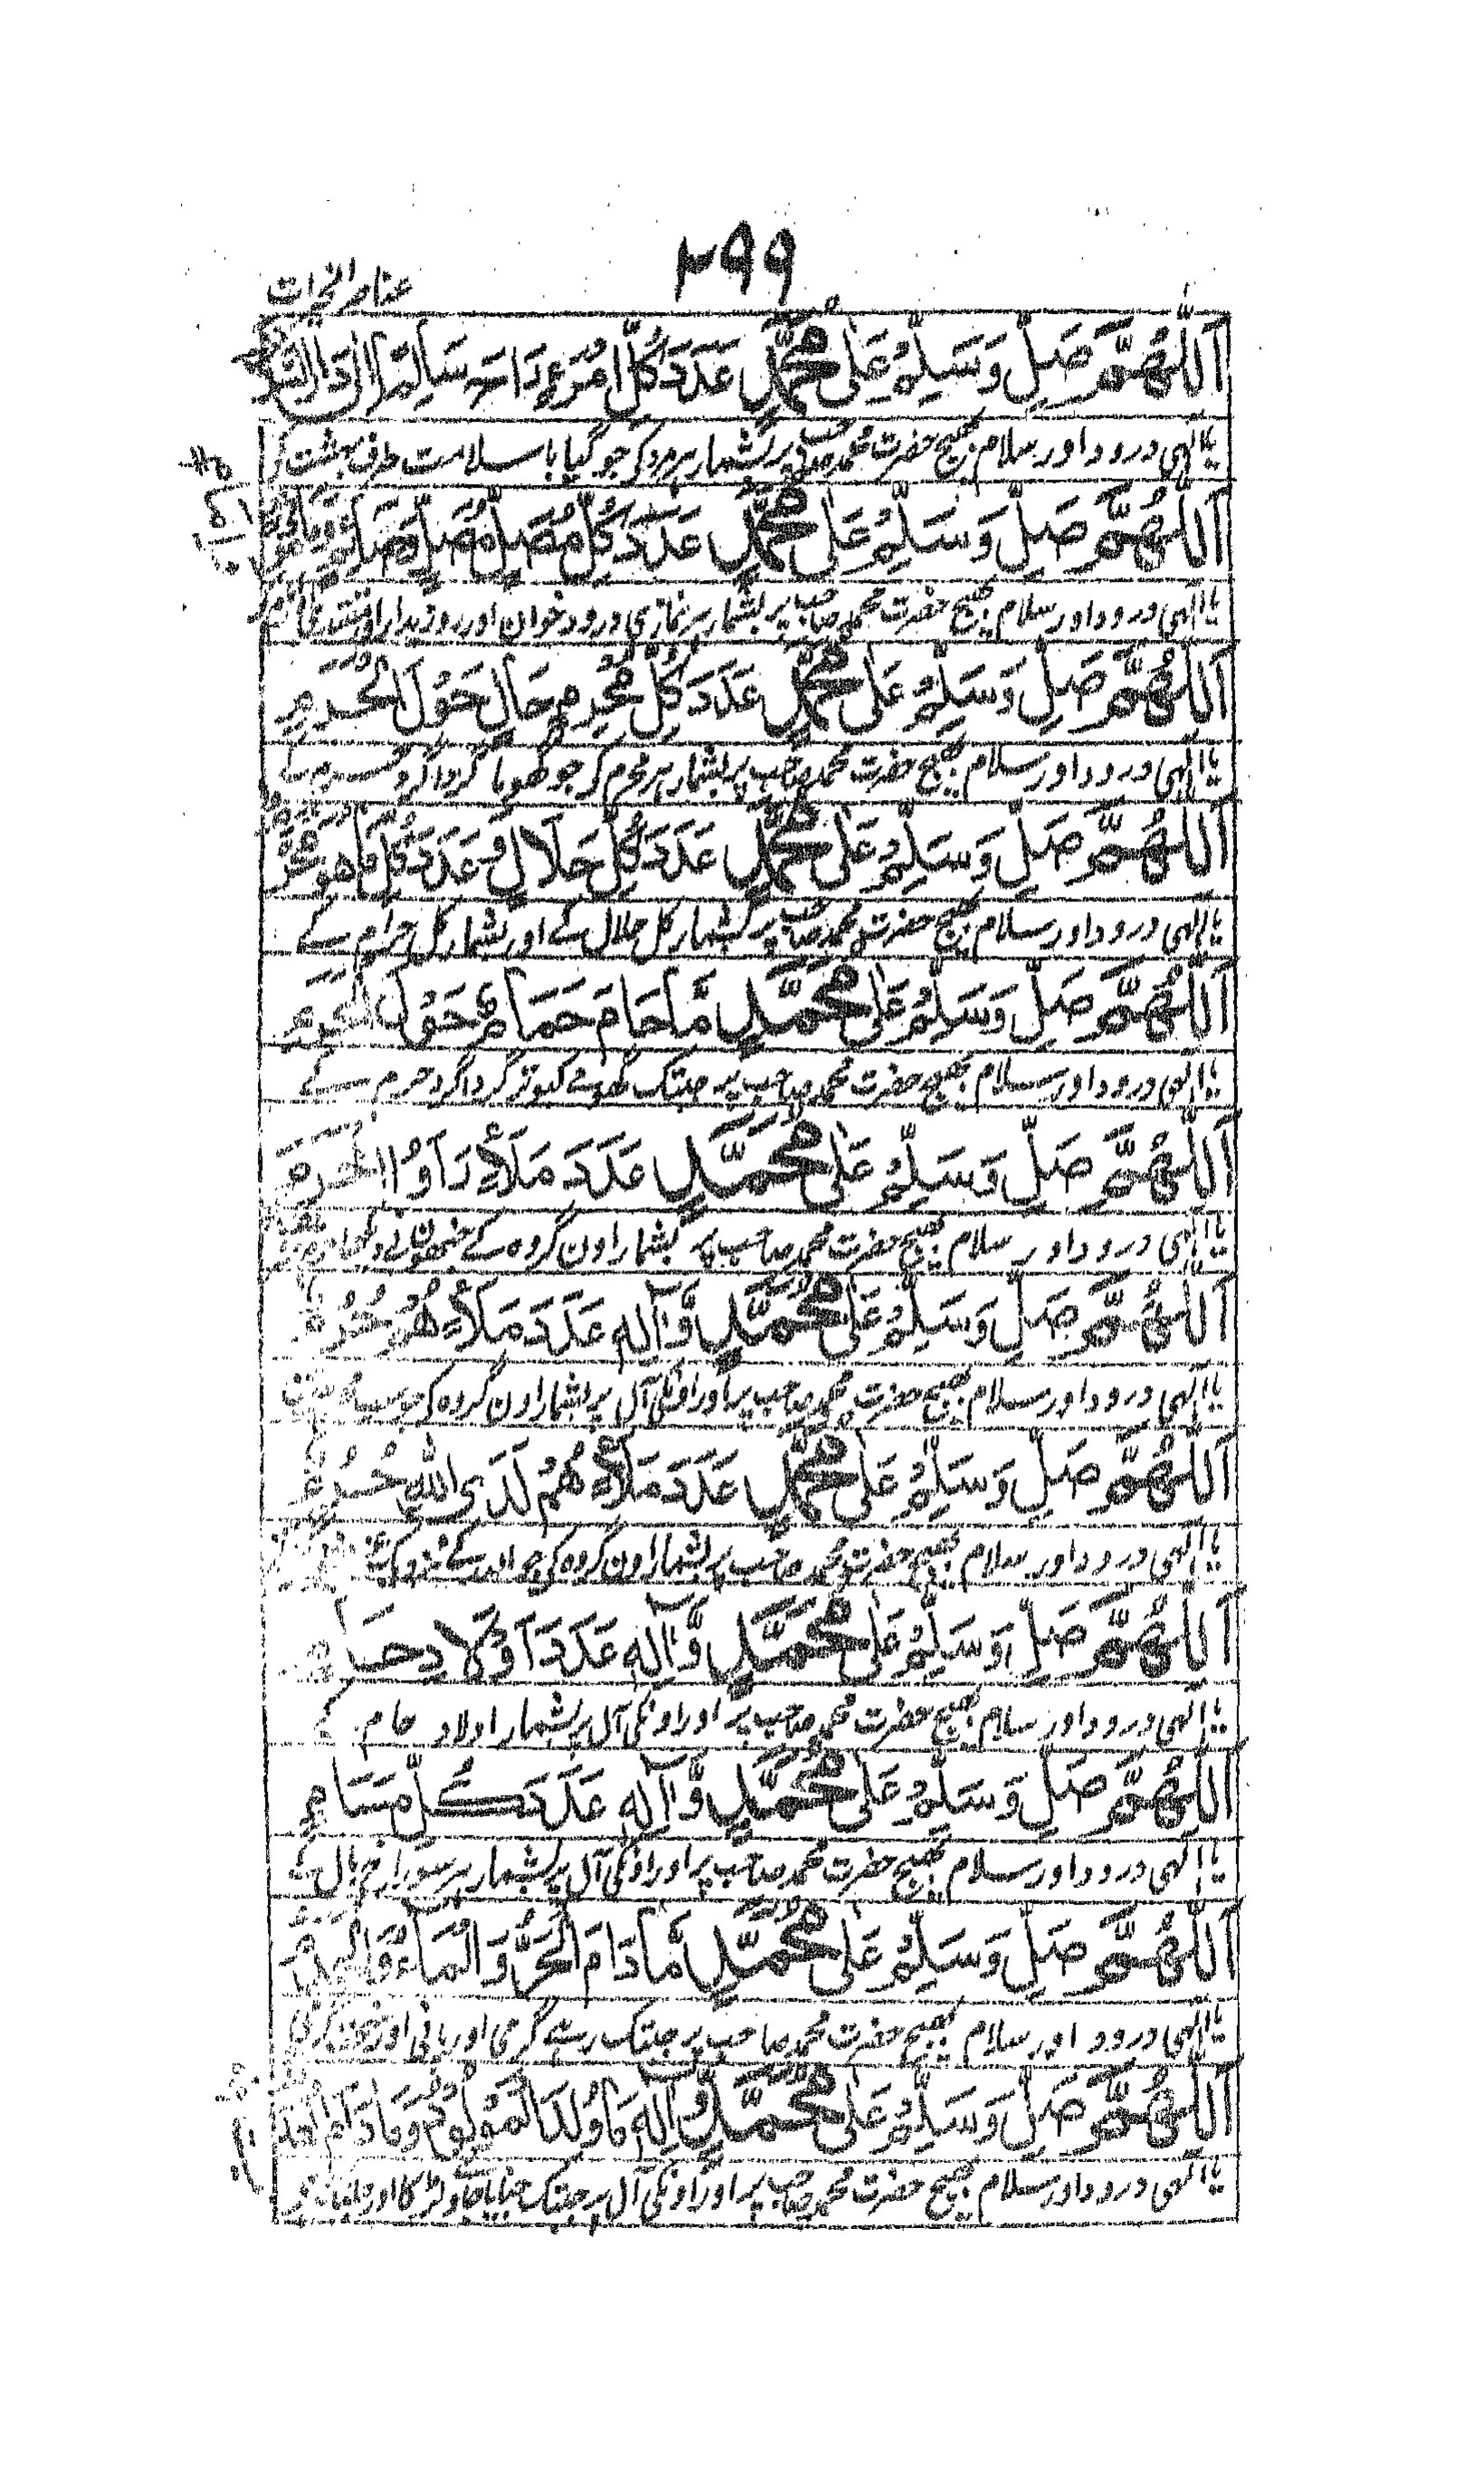 ۲۹۹
عناصر الخیرات
اَللّٰهُمَّ صَلِّ وَسَلِّمْ عَلٰى مُحَمَّدٍ عَدَدَ كُلِّ امْرَءٍ سَالِمًا اِلٰى دَارِ
یا الٰہی درود اور سلام بھیج حضرت محمد صاحب پر بشمار ہر مرد کی جو گیا با سلامت طرف بہشت کے
اَللّٰهُمَّ صَلِّ وَسَلِّمْ عَلٰى مُحَمَّدٍ عَدَدَ كُلِّ مُصَلٍّ
یا الٰہی درود اور سلام بھیج حضرت محمد صاحب پر بشمار ہر نمازی درود خوان اور روزیدار اور
اَللّٰهُمَّ صَلِّ وَسَلِّمْ عَلٰى مُحَمَّدٍ عَدَدَ كُلِّ مُحْرِمٍ حَالَ حَوْلَ الْحَرَمِ
یا الٰہی درود اور سلام بھیج حضرت محمد صاحب پر بشمار ہر محرم کے جو گھوما گردا گرد حرم کے
اَللّٰهُمَّ صَلِّ وَسَلِّمْ عَلٰى مُحَمَّدٍ عَدَدَ كُلِّ حَلَالٍ وَّعَدَدَ كُلِّ مَا هُوَ مُحَرَّمٌ
یا الٰہی درود اور سلام بھیج حضرت محمد صاحب پر بشمار کل حلال کے اور بشمار کل حرام کے
اَللّٰهُمَّ صَلِّ وَسَلِّمْ عَلٰى مُحَمَّدٍ مَّا حَامَ حَمَامٌ حَوْلَ الْحَرَمِ
یا الٰہی درود اور سلام بھیج حضرت محمد صاحب پر جبتک گھومے کبوتر گردا گرد حرم کے
اَللّٰهُمَّ صَلِّ وَسَلِّمْ عَلٰى مُحَمَّدٍ عَدَدَ مَلَأٍ رَاَوُا الْحَرَمَ
یا الٰہی درود اور سلام بھیج حضرت محمد صاحب پر بشمار اون گروہ کے جنھوں نے دیکھا
اَللّٰهُمَّ صَلِّ وَسَلِّمْ عَلٰى مُحَمَّدٍ وَّاٰلِهٖ عَدَدَ مَلَأٍ هُمْ
یا الٰہی درود اور سلام بھیج حضرت محمد صاحب پر اور اونکی آل پر بشمار اون گروہ کے
اَللّٰهُمَّ صَلِّ وَسَلِّمْ عَلٰى مُحَمَّدٍ عَدَدَ مَلَأٍ هُمْ لَدَى اللّٰهِ
یا الٰہی درود اور سلام بھیج حضرت محمد صاحب پر بشمار اون گروہ کی جو اللہ کے نزدیک
اَللّٰهُمَّ صَلِّ وَسَلِّمْ عَلٰى مُحَمَّدٍ وَّاٰلِهٖ عَدَدَ اَوْلَادِ حَامٍ
یا الٰہی درود اور سلام بھیج حضرت محمد صاحب پر اور اونکی آل پر بشمار اولاد حام کے
اَللّٰهُمَّ صَلِّ وَسَلِّمْ عَلٰى مُحَمَّدٍ وَّاٰلِهٖ عَدَدَ كُلِّ مَسَامٍ
یا الٰہی درود اور سلام بھیج حضرت محمد صاحب پر اور اونکی آل پر بشمار ہر سوراخ بال کے
اَللّٰهُمَّ صَلِّ وَسَلِّمْ عَلٰى مُحَمَّدٍ مَّا دَامَ الْحَرُّ وَالْمَاءُ
یا الٰہی درود اور سلام بھیج حضرت محمد صاحب پر جبتک رہے گرمی اور پانی اور
اَللّٰهُمَّ صَلِّ وَسَلِّمْ عَلٰى مُحَمَّدٍ وَّاٰلِهٖ مَا وُلِدَ الْمَوْلُوْدُ وَمَا دَامَ
یا الٰہی درود اور سلام بھیج حضرت محمد صاحب پر اور اونکی آل پر جبتک جنا یا جاوے لڑکا اور